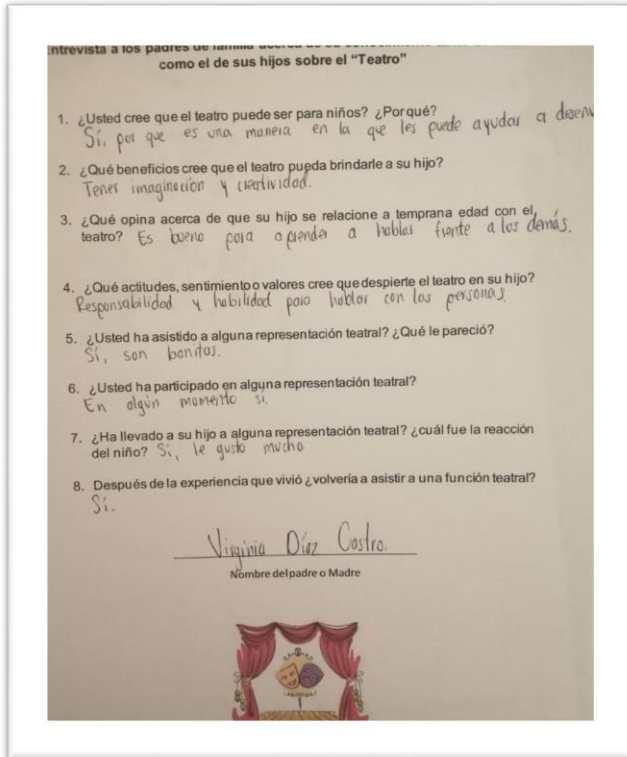 Entrevista a los padres de familia
como el de sus hijos sobre el “Teatro”
1. ¿Usted cree que el teatro puede ser para niños? ¿Por qué?
Sí, por que es una manera en la que les puede ayudar a desenv
2. ¿Qué beneficios cree que el teatro pueda brindarle a su hijo?
Tener imaginación y creatividad.
3. ¿Qué opina acerca de que su hijo se relacione a temprana edad con el
teatro? Es bueno para aprender a hablar frente a los demás.
4. ¿Qué actitudes, sentimiento o valores cree que despierte el teatro en su hijo?
Responsabilidad y habilidad para hablar con las personas.
5. ¿Usted ha asistido a alguna representación teatral? ¿Qué le pareció?
Sí, son bonitas.
6. ¿Usted ha participado en alguna representación teatral?
En algún momento sí.
7. ¿Ha llevado a su hijo a alguna representación teatral? ¿cuál fue la reacción
del niño? Sí, le gusto mucho
8. Después de la experiencia que vivió ¿volvería a asistir a una función teatral?
Sí.
Virginia Díaz Castro.
Nombre del padre o Madre